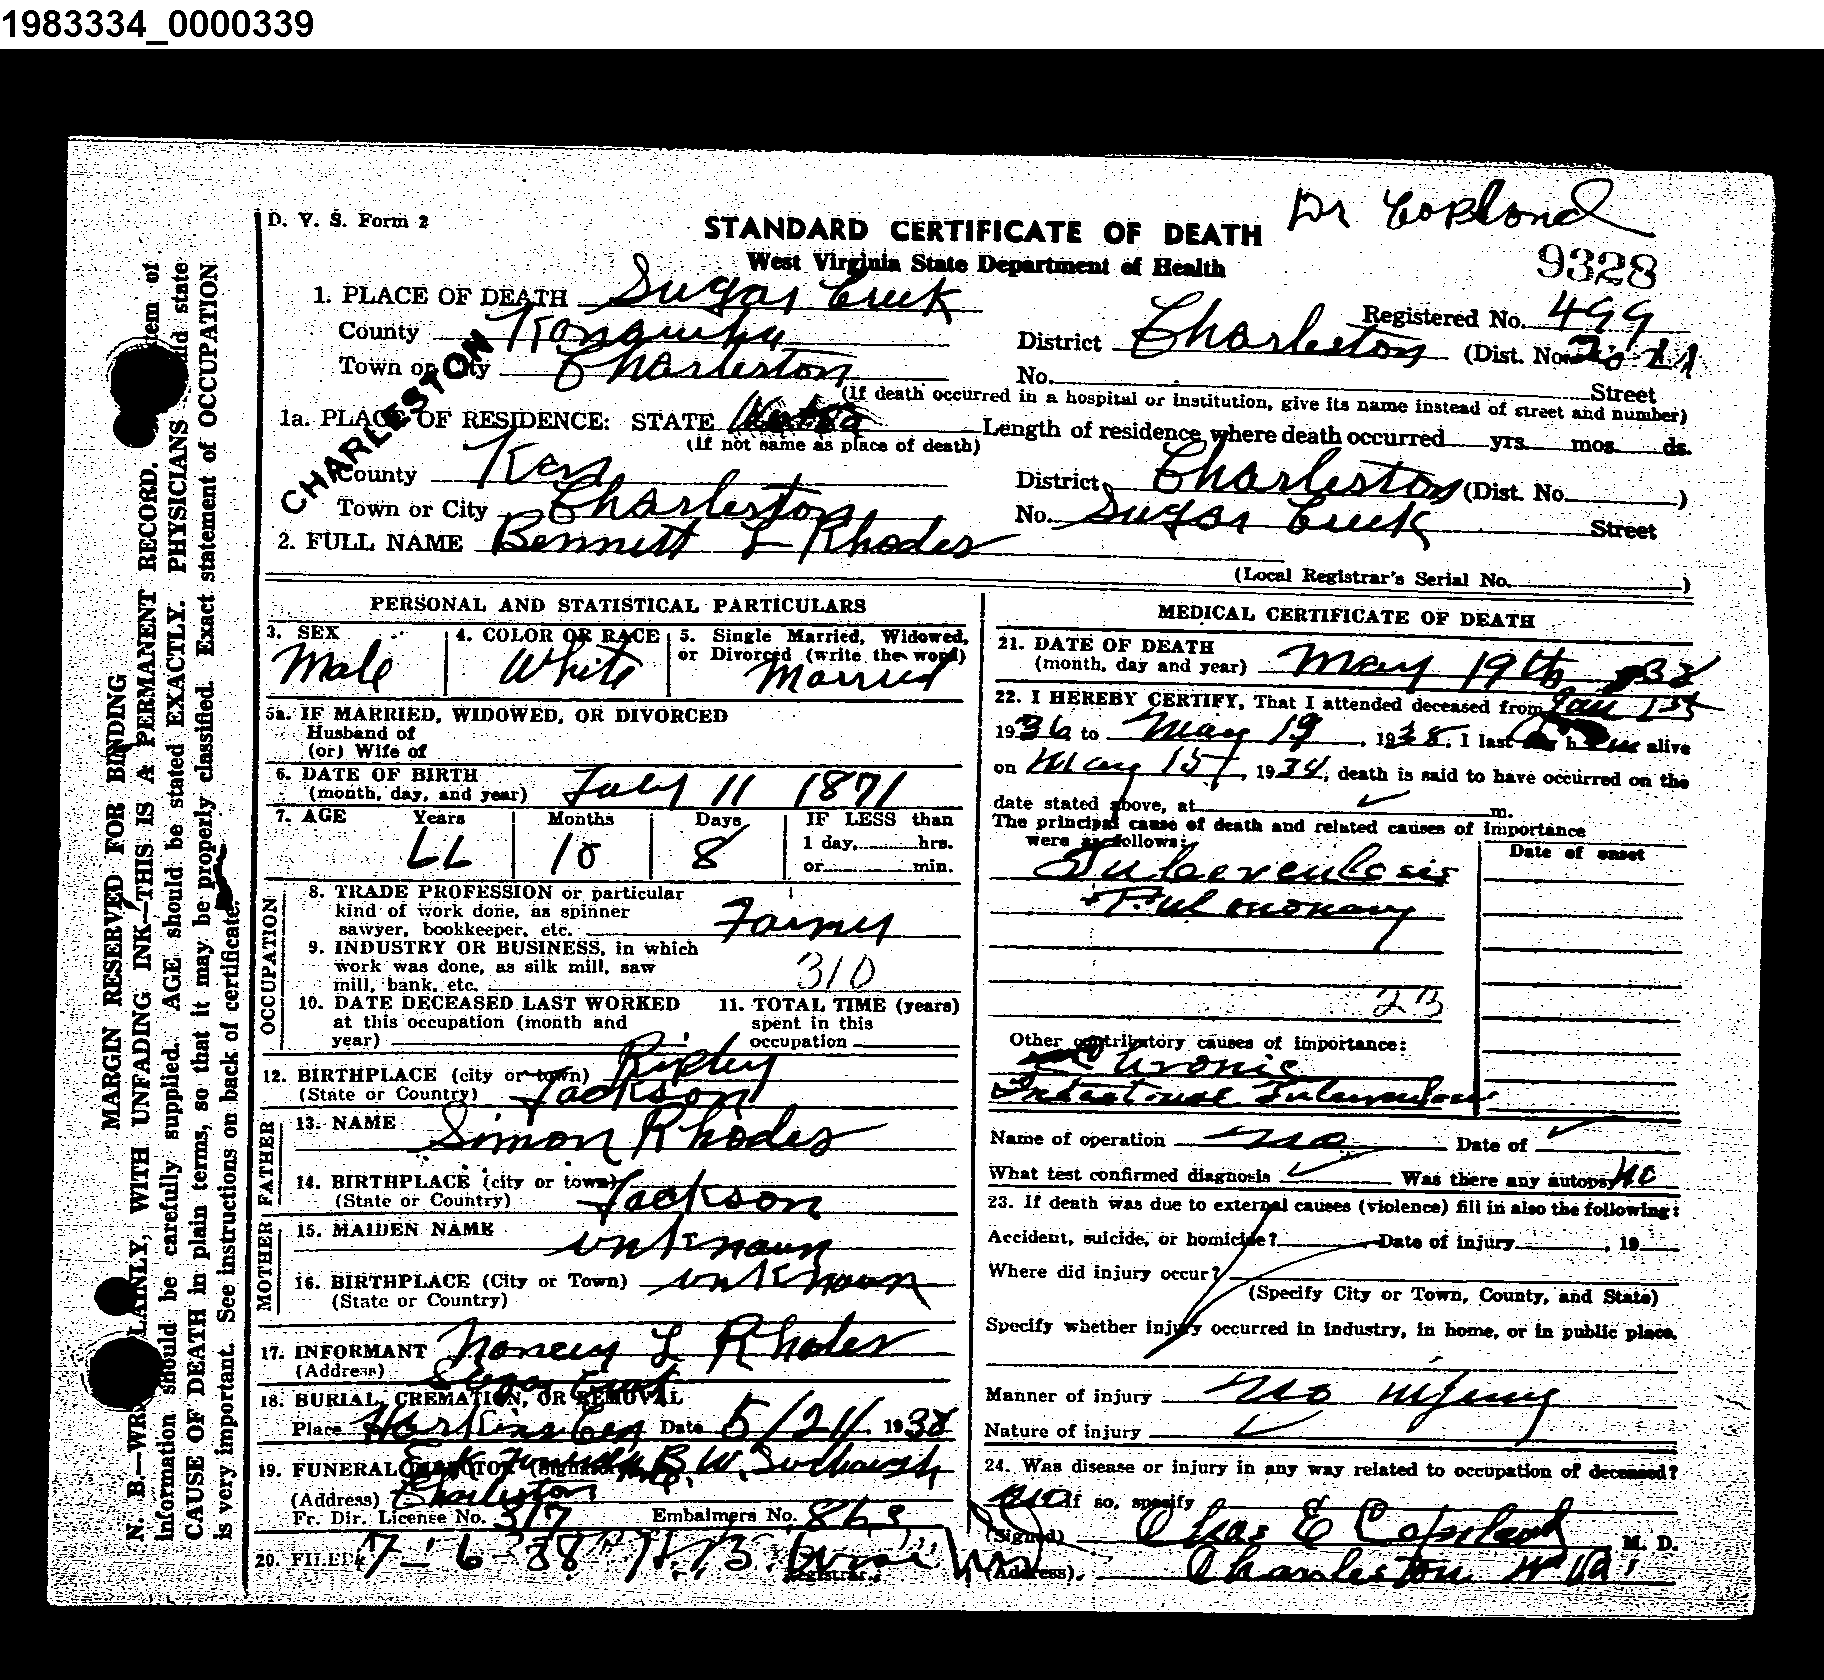 1983334_0000339
D. V. S. Form 2
Dr Copland
STANDARD CERTIFICATE OF DEATH
West Virginia State Department of Health
9328
1. PLACE OF DEATH Sugar Creek
Registered No. 499
County Kanawha
District Charleston (Dist. No.
Town or City Charleston
No. Street
(If death occurred in a hospital or institution, give its name instead of street and number)
CHARLESTON
1a. PLACE OF RESIDENCE: STATE
(If not same as place of death)
Length of residence where death occurred yrs. mos. ds.
County Kan
District Charleston (Dist. No. )
Town or City Charleston
No. Sugar Creek Street
2. FULL NAME Bennett L Rhodes
(Local Registrar's Serial No. )
PERSONAL AND STATISTICAL PARTICULARS
3. SEX Male
4. COLOR OR RACE White
5. Single Married, Widowed, or Divorced (write the word) Married
5a. IF MARRIED, WIDOWED, OR DIVORCED
Husband of
(or) Wife of
6. DATE OF BIRTH
(month, day, and year) July 11 1871
7. AGE Years Months Days IF LESS than
66 10 8 1 day, hrs.
or min.
OCCUPATION
8. TRADE PROFESSION or particular
kind of work done, as spinner
sawyer, bookkeeper, etc. Farmer
9. INDUSTRY OR BUSINESS, in which
work was done, as silk mill, saw
mill, bank, etc. 310
10. DATE DECEASED LAST WORKED
at this occupation (month and
year)
11. TOTAL TIME (years)
spent in this
occupation
12. BIRTHPLACE (city or town) Ripley
(State or Country) Jackson
FATHER
13. NAME Simon Rhodes
14. BIRTHPLACE (city or town)
(State or Country) Jackson
MOTHER
15. MAIDEN NAME unknown
16. BIRTHPLACE (City or Town) unknown
(State or Country)
17. INFORMANT Nancy L Rhodes
(Address) Sugar Creek
18. BURIAL, CREMATION, OR REMOVAL
Place Harkins Cem Date 5/21/ 1938
19. FUNERAL DIRECTOR (Signature) B. W.
(Address) Charleston
Fr. Dir. License No. 317 Embalmers No. 868
20. FILED 7-6-38
Registrar.
MEDICAL CERTIFICATE OF DEATH
21. DATE OF DEATH
(month, day and year) May 19th 938
22. I HEREBY CERTIFY, That I attended deceased from Jan 1st
1936 to May 19, 1938. I last h alive
on May 15, 1938, death is said to have occurred on the
date stated above, at m.
The principal cause of death and related causes of importance
were as follows:
Date of onset
Tuberculosis
Pulmonary
23
Other contributory causes of importance:
Chronic
Intestinal Tuberculosis
Name of operation no Date of
What test confirmed diagnosis Was there any autopsy No
23. If death was due to external causes (violence) fill in also the following:
Accident, suicide, or homicide? Date of injury , 19
Where did injury occur?
(Specify City or Town, County, and State)
Specify whether injury occurred in industry, in home, or in public place.
Manner of injury no injury
Nature of injury
24. Was disease or injury in any way related to occupation of deceased?
no If so, specify
(Signed) Chas E Copeland M. D.
(Address) Charleston W Va
MARGIN RESERVED FOR BINDING
N. B.—WRITE PLAINLY, WITH UNFADING INK—THIS IS A PERMANENT RECORD. item of
information should be carefully supplied. AGE should be stated EXACTLY. PHYSICIANS should state
CAUSE OF DEATH in plain terms, so that it may be properly classified. Exact statement of OCCUPATION
is very important. See instructions on back of certificate.